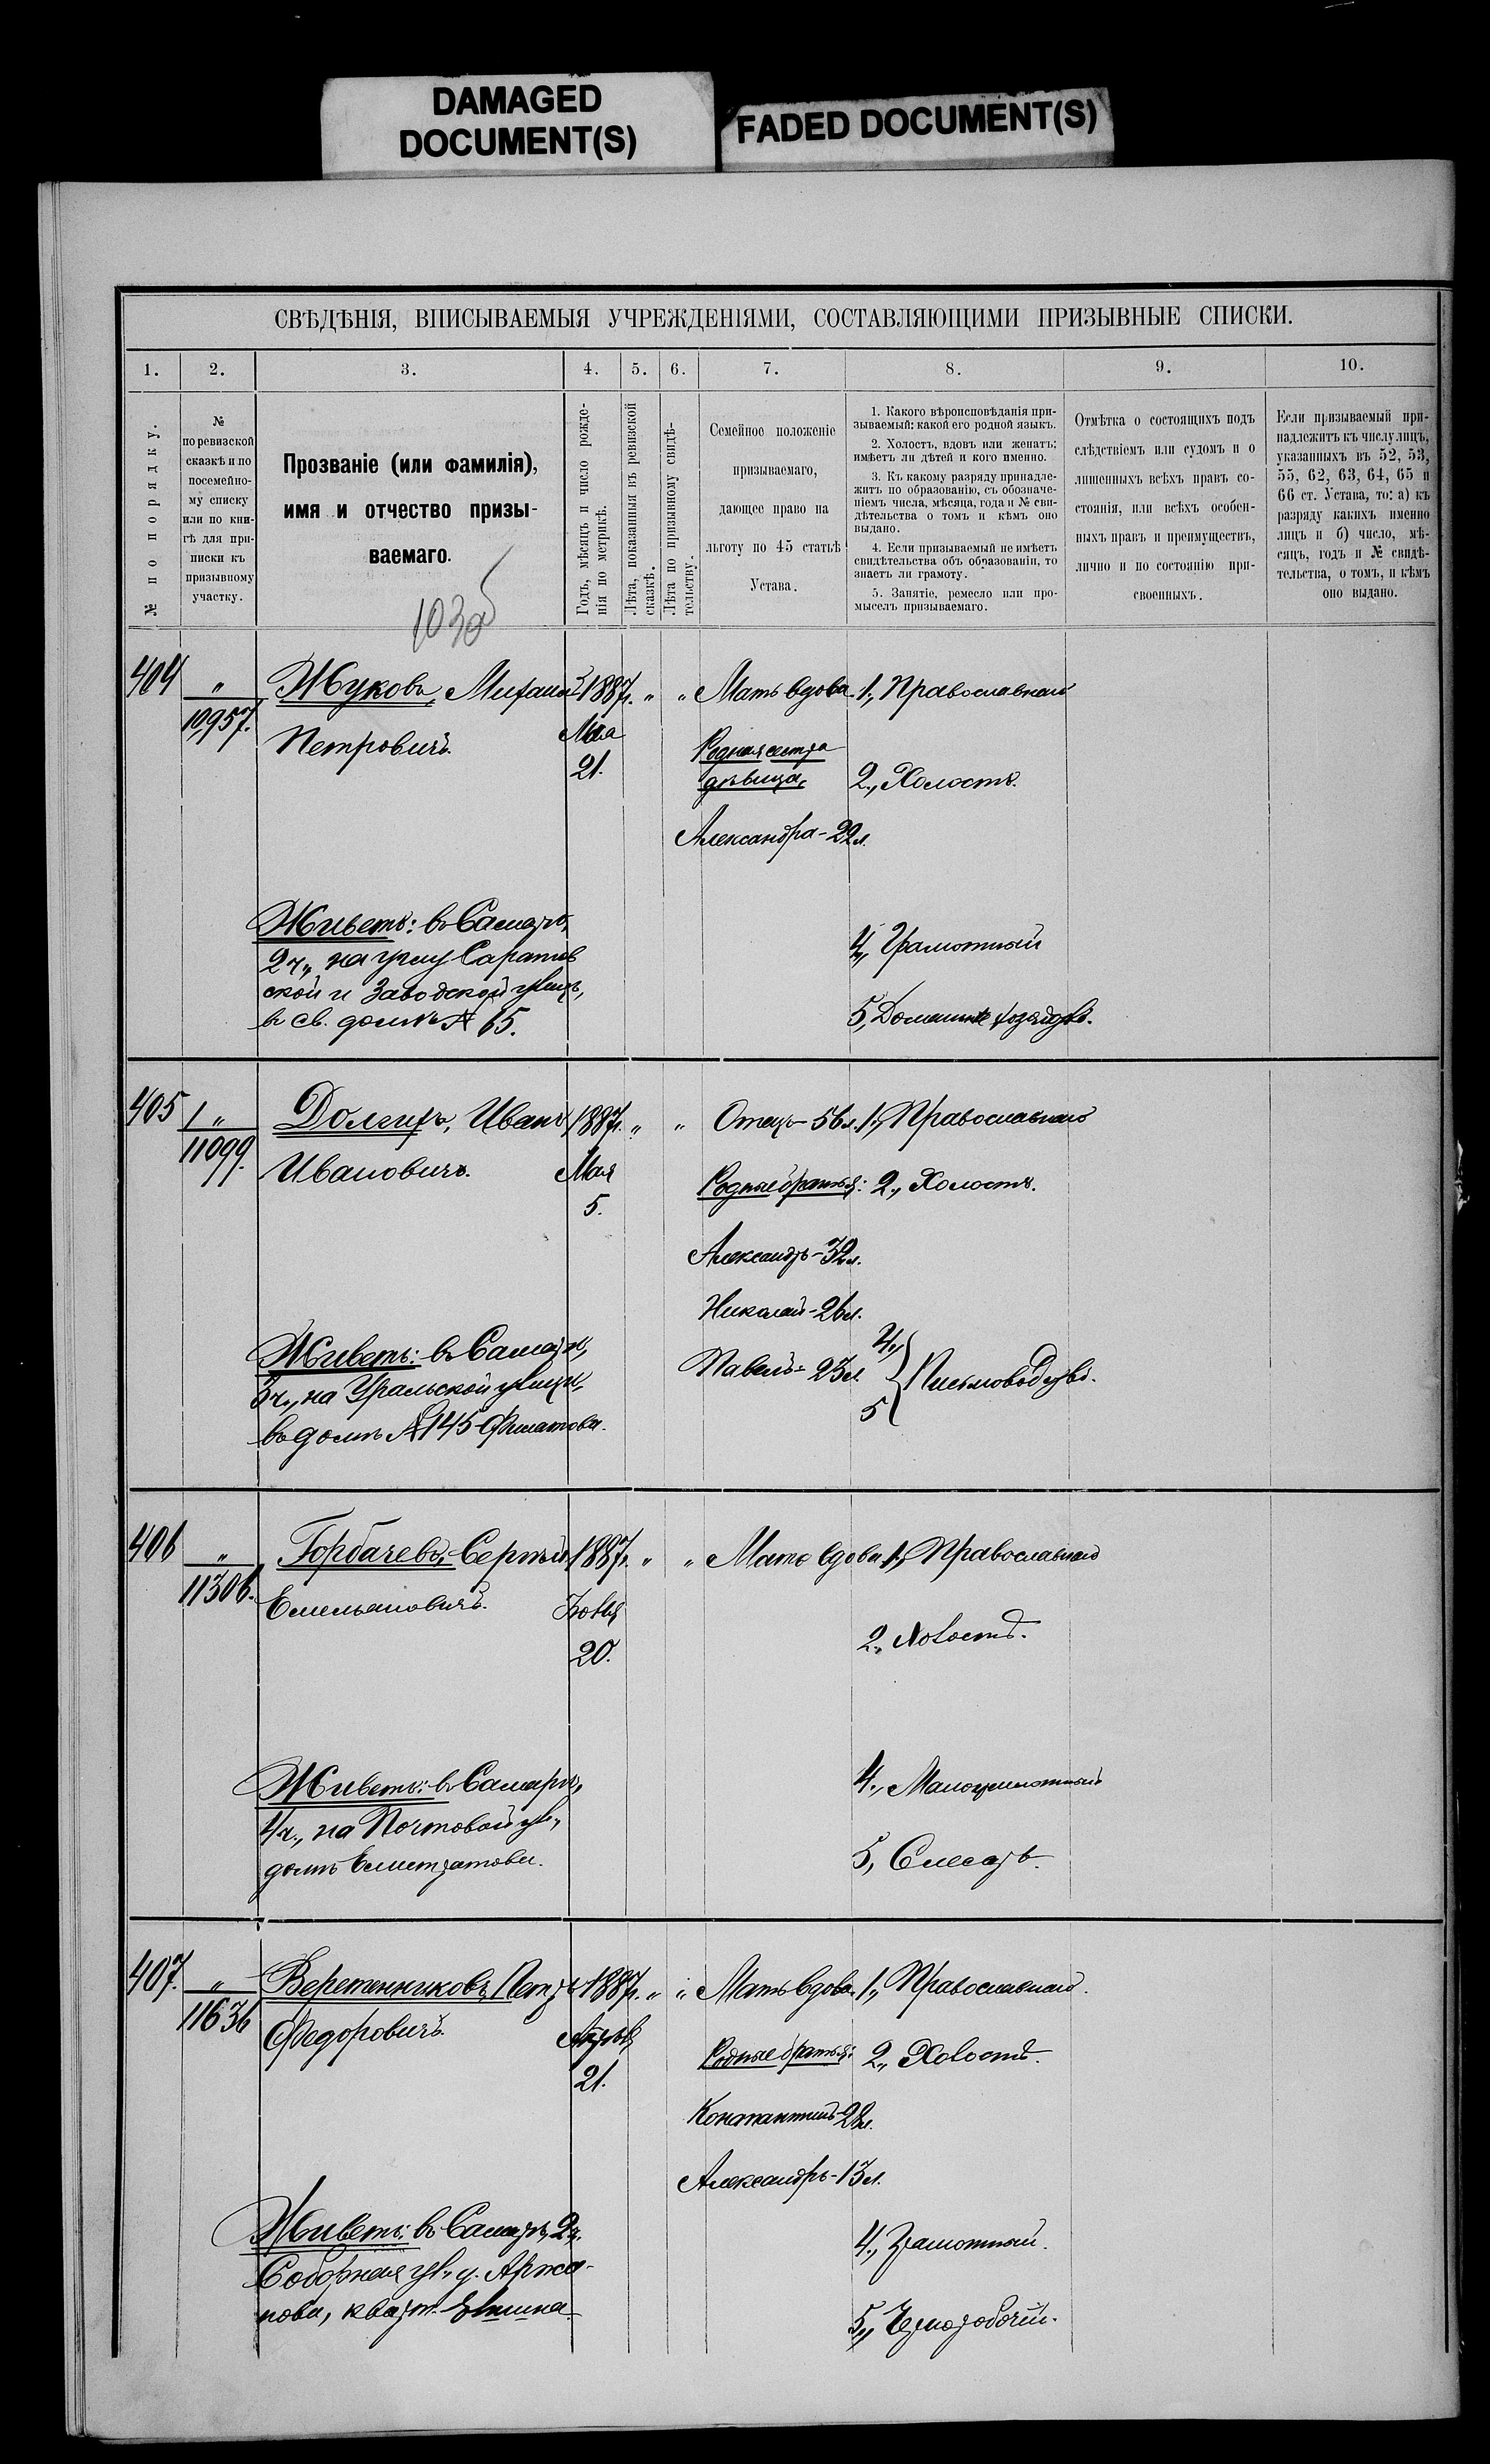 DAMAGED
DOCUMENT(S)
FADED DOCUMENT(S)
СВѢДѢНІЯ, ВПИСЫВАЕМЫЯ УЧРЕЖДЕНІЯМИ, СОСТАВЛЯЮЩИМИ ПРИЗЫВНЫЕ СПИСКИ.
1. 2. 3. 4. 5. 6. 7. 8. 9. 10.
№ по порядку.
№
по ревизской
сказкѣ и по
посемейно-
му списку
или по кни-
гѣ для при-
писки къ
призывному
участку.
Прозваніе (или фамилія),
имя и отчество призы-
ваемаго.
Годъ, мѣсяцъ и число рожде-
нія по метрикѣ.
Лѣта, показанныя въ ревизской
сказкѣ.
Лѣта по призывному свидѣ-
тельству.
Семейное положеніе
призываемаго,
дающее право на
льготу по 45 статьѣ
Устава.
1. Какого вѣроисповѣданія при-
зываемый: какой его родной языкъ.
2. Холостъ, вдовъ или женатъ:
имѣетъ ли дѣтей и кого именно.
3. Къ какому разряду принадле-
житъ по образованію, съ обозначе-
ніемъ числа, мѣсяца, года и № сви-
дѣтельства о томъ и кѣмъ оно
выдано.
4. Если призываемый не имѣетъ
свидѣтельства объ образованіи, то
знаетъ ли грамоту.
5. Занятіе, ремесло или про-
мыселъ призываемаго.
Отмѣтка о состоящихъ подъ
слѣдствіемъ или судомъ и о
лишенныхъ всѣхъ правъ со-
стоянія, или всѣхъ особен-
ныхъ правъ и преимуществъ,
лично и по состоянію при-
своенныхъ.
Если призываемый при-
надлежитъ къ числу лицъ,
указанныхъ въ 52, 53,
55, 62, 63, 64, 65 и
66 ст. Устава, то: а) къ
разряду какихъ именно
лицъ и б) число, мѣ-
сяцъ, годъ и № свидѣ-
тельства, о томъ, и кѣмъ
оно выдано.
404 " Жуковъ, Михаилъ 1887г. " " Мать вдова 1., Православнаго
10957. Петровичъ. Мая
21.
Родная сестра
дѣвица, 2., Холостъ.
Александра - 22л.
Живетъ: въ Самарѣ,
2ч., на углу Саратов
ской и Заводской улицъ,
въ св. домѣ № 65.
4., Грамотный
5, Домашнее хозяйство.
405 1 " Долгихъ, Иванъ 1887г. " " Отецъ - 56л. 1., Православнаго
11099. Ивановичъ. Мая
5.
Родные братья: 2., Холостъ.
Александръ - 32л.
Николай - 26л.
Павелъ - 23л.
Живетъ: въ Самарѣ,
3ч., на Уральской улицѣ,
въ домѣ № 145 Филатова.
4.,
5 Письмоводство.
406 " Горбачевъ, Сергѣй 1887г. " " Мать вдова 1., Православнаго
11306. Емельяновичъ. Іюня
20.
2., Холостъ.
Живетъ: въ Самарѣ,
4ч., на Почтовой ул.,
домъ Елистратова.
4., Малограмотный
5, Слесарь.
407. " Веретенниковъ, Петръ 1887г. " " Мать вдова 1., Православнаго.
11636 Федоровичъ. Апрѣля
21.
Родные братья: 2., Холостъ.
Константинъ - 28л.
Александръ - 13л.
Живетъ: въ Самарѣ, 2ч.
Соборная ул., д. Аржа-
нова, кварт.
4., Грамотный.
5., Чернорабочій.